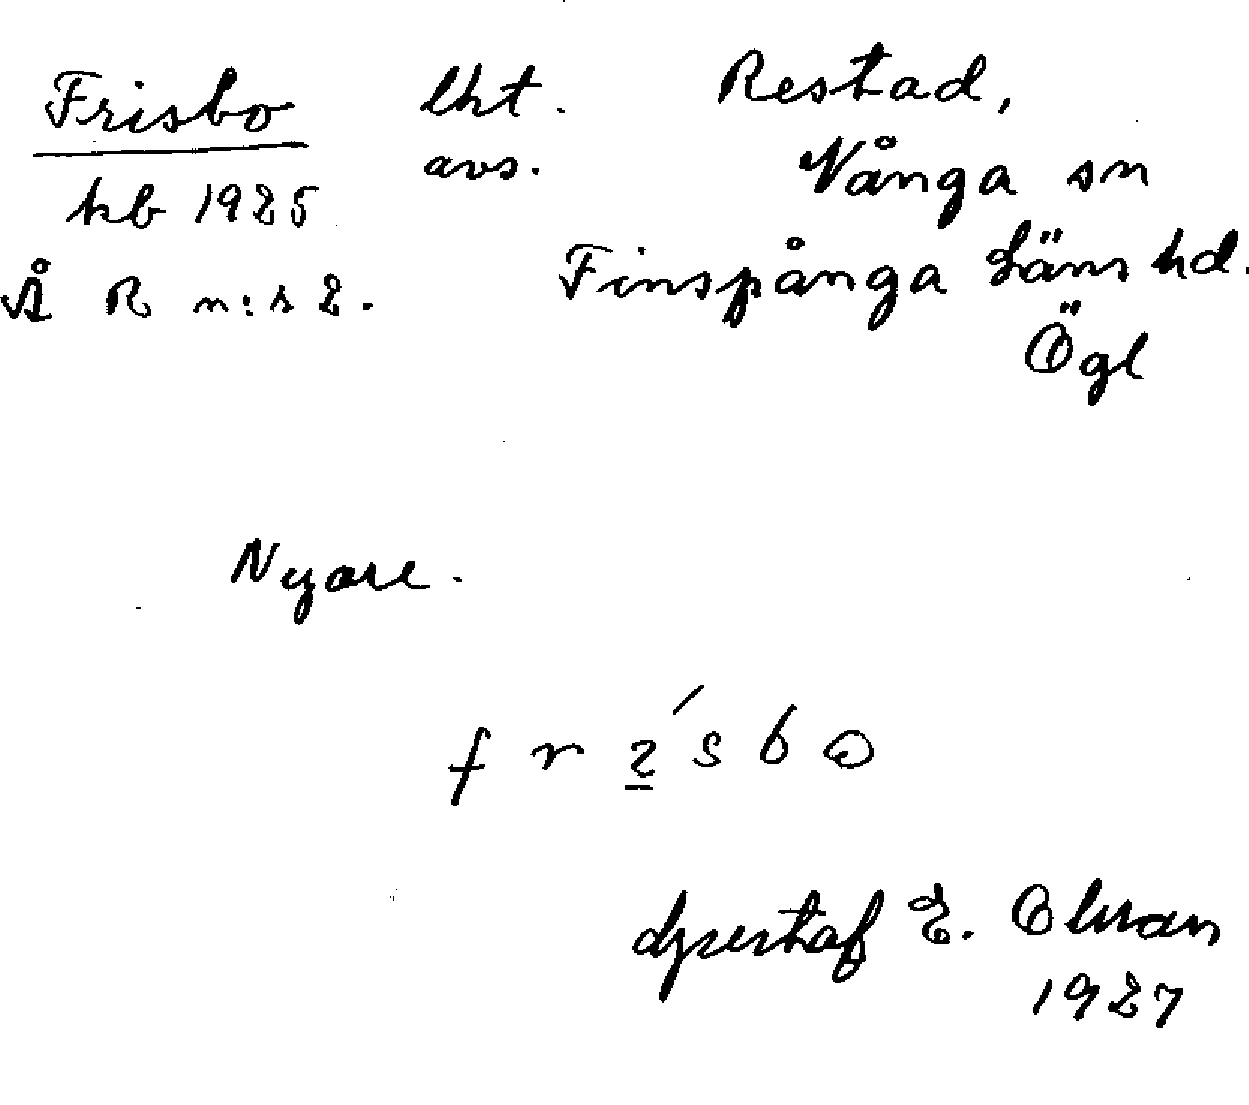 Frisbo lht. Restad,
avs. Vånga sn
kb 1925
Finspånga läns hd.
Å R n:r 2.
Ögl
Nyare.
frɩ́sbo
Gustaf E. Olsson
1927